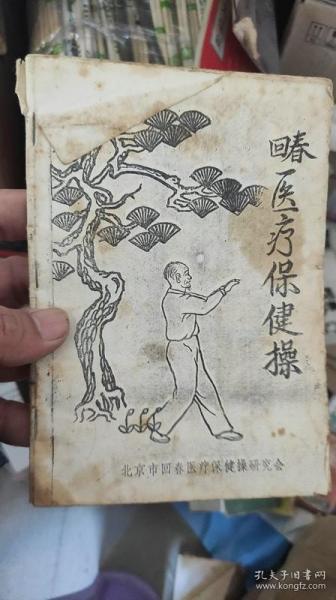 回春医疗保健操
北京市回春医疗保健操研究会
孔夫子旧书网